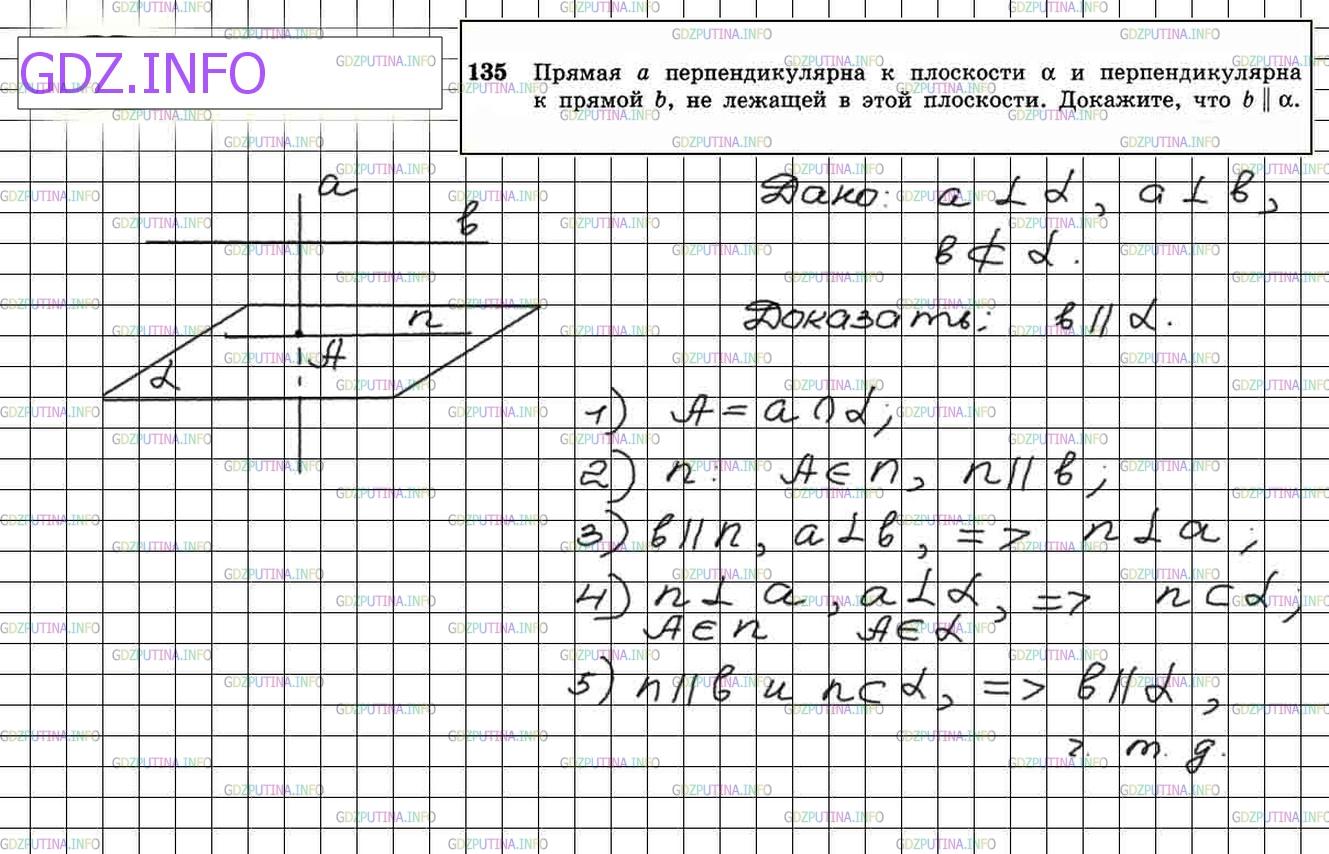 GDZ.INFO
135 Прямая a перпендикулярна к плоскости α и перпендикулярна
к прямой b, не лежащей в этой плоскости. Докажите, что b ∥ α.
a
в
n
A
α
Дано: a ⊥ α, a ⊥ в,
в ⊄ α.
Доказать: в ∥ α.
1) A = a ∩ α;
2) n: A ∈ n, n ∥ в;
3) в ∥ n, a ⊥ в, => n ⊥ a;
4) n ⊥ a, a ⊥ α, => n ⊂ α;
A ∈ n A ∈ α
5) n ∥ в и n ⊂ α, => в ∥ α,
ч. т. д.
GDZPUTINA.INFO